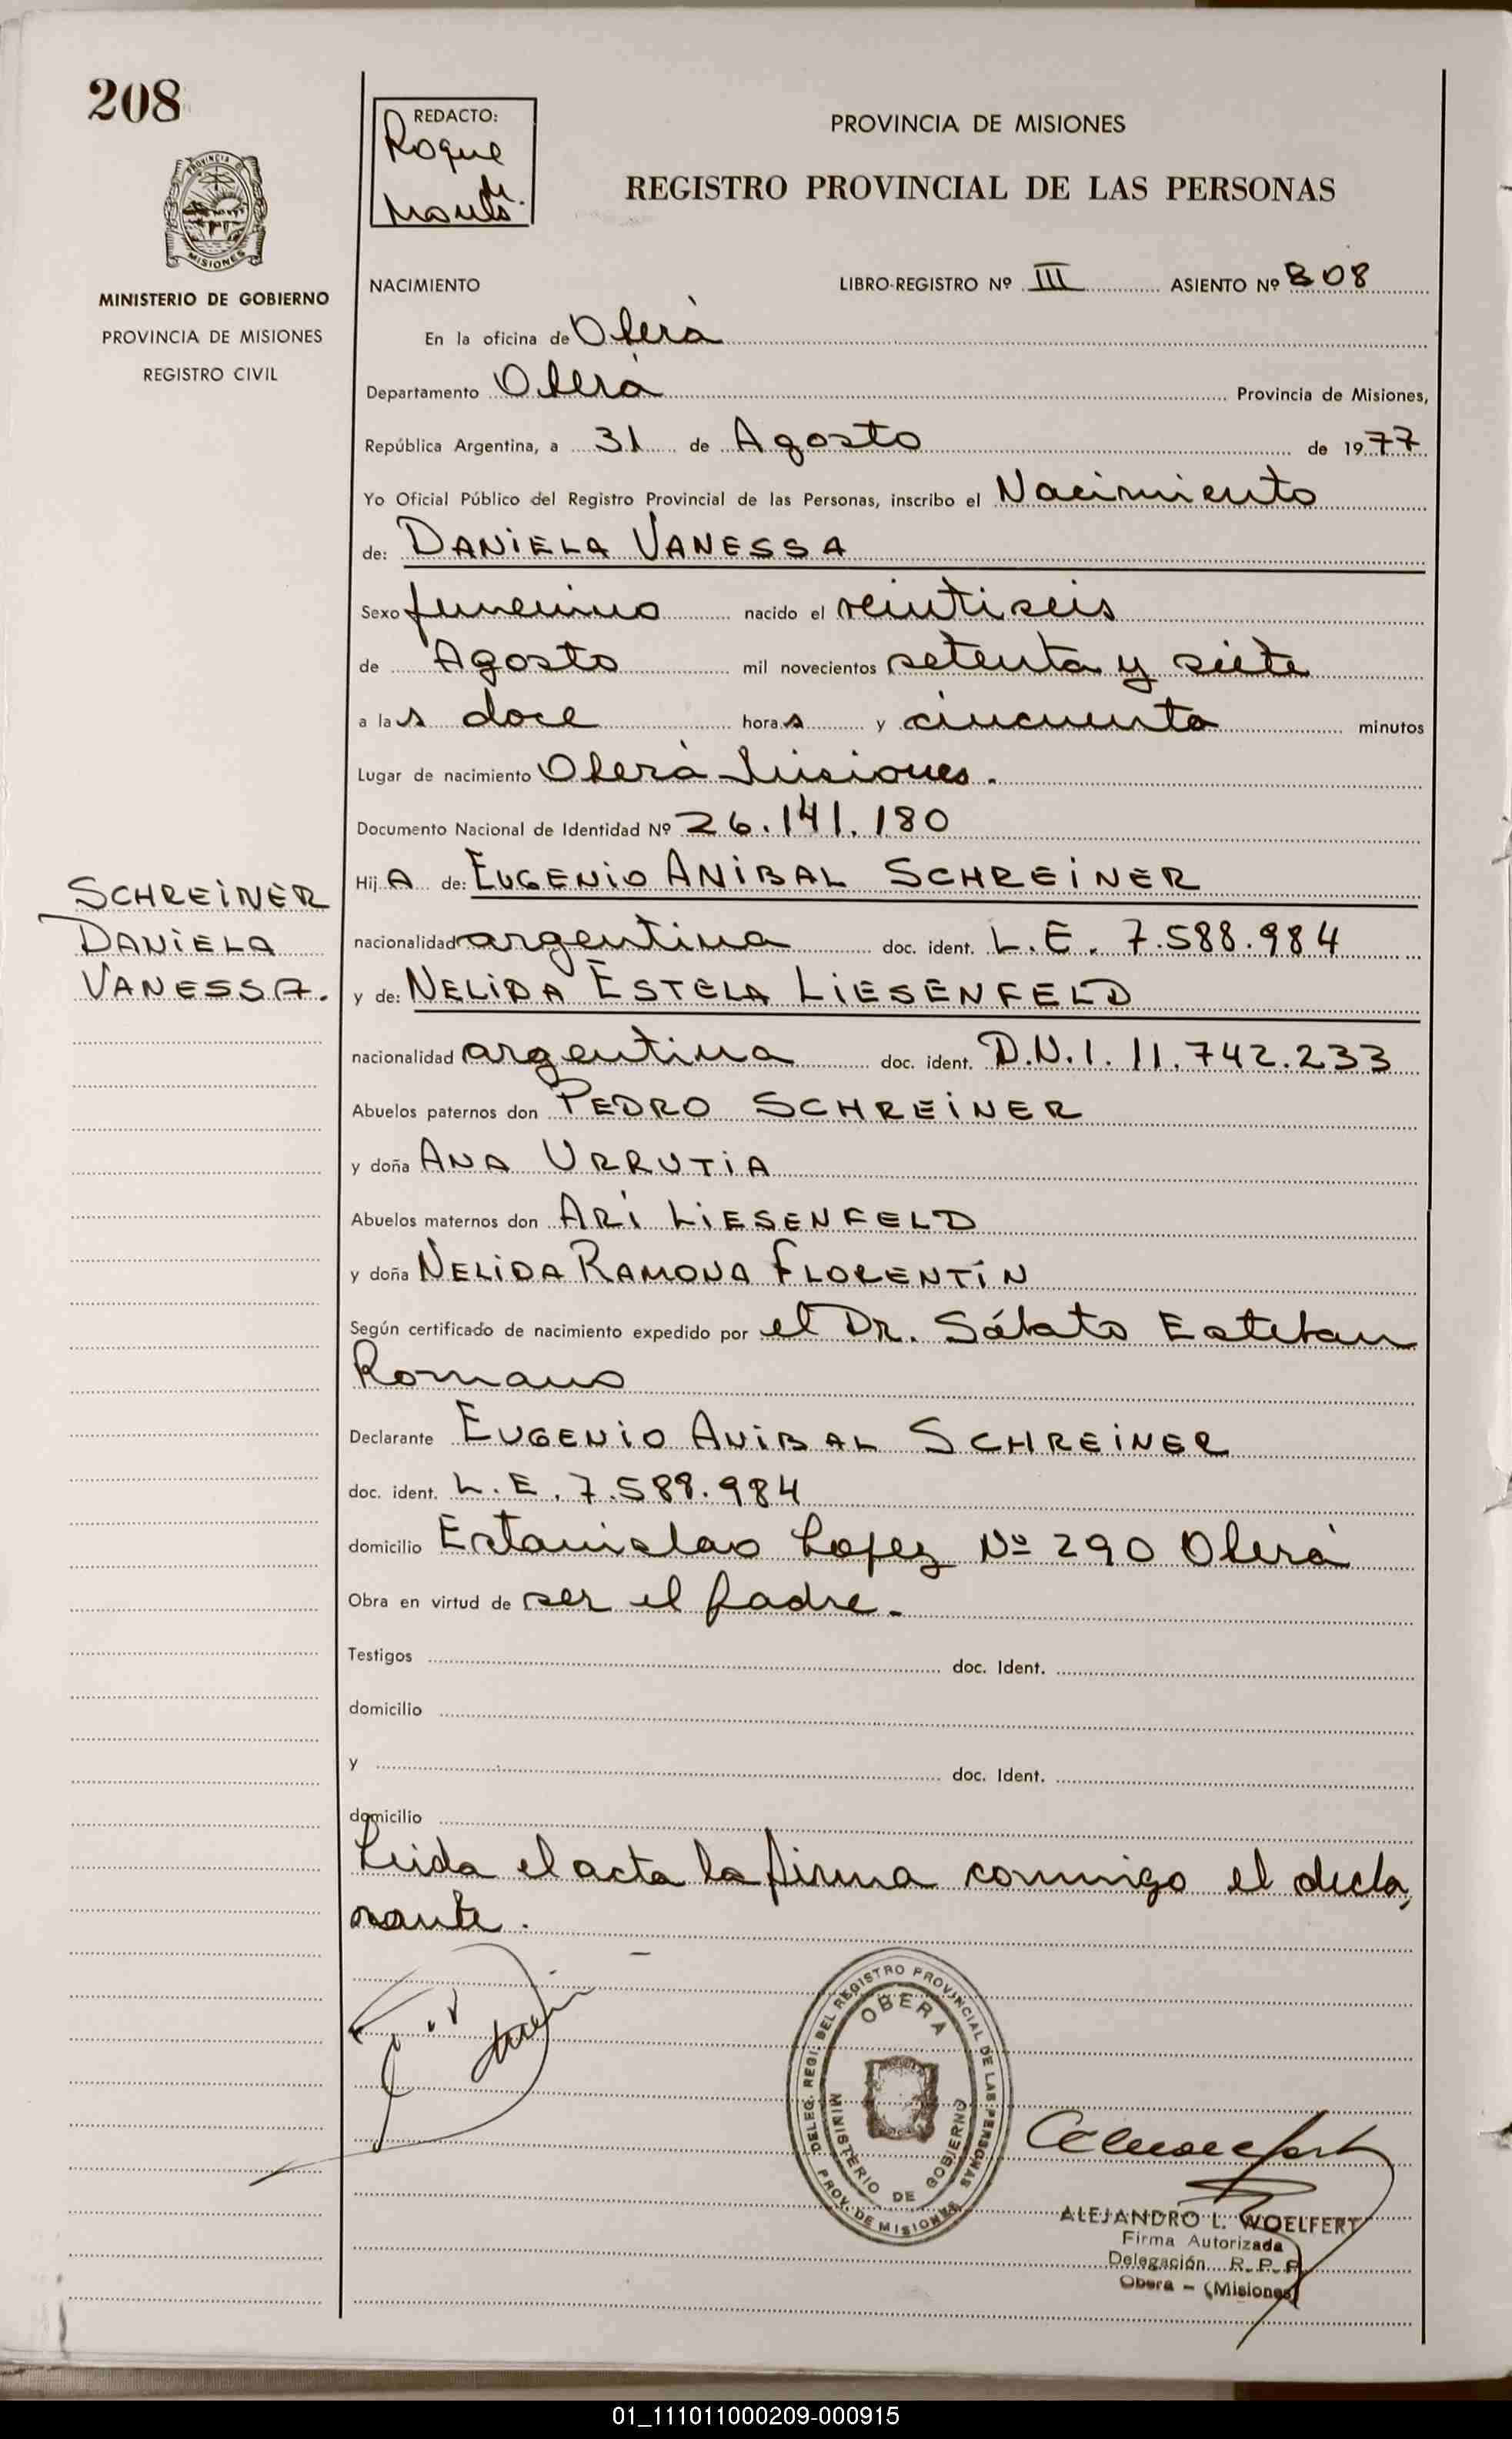 208
REDACTO:
Roque
PROVINCIA DE MISIONES
REGISTRO PROVINCIAL DE LAS PERSONAS
PROVINCIA DE
MISIONES
MINISTERIO DE GOBIERNO
PROVINCIA DE MISIONES
REGISTRO CIVIL
NACIMIENTO LIBRO-REGISTRO Nº III ASIENTO Nº 808
En la oficina de Oberà
Departamento Oberà Provincia de Misiones,
República Argentina, a 31 de Agosto de 1977
Yo Oficial Público del Registro Provincial de las Personas, inscribo el Nacimiento
de: DANIELA VANESSA
Sexo femenino nacido el veintiseis
de Agosto mil novecientos setenta y siete
a las doce horas y cincuenta minutos
Lugar de nacimiento Oberà Misiones.
Documento Nacional de Identidad Nº 26.141.180
Hija de: EUGENIO ANIBAL SCHREINER
nacionalidad argentina doc. ident. L.E. 7.588.984
y de: NELIDA ESTELA LIESENFELD
nacionalidad argentina doc. ident. D.N.I. 11.742.233
Abuelos paternos don PEDRO SCHREINER
y doña ANA URRUTIA
Abuelos maternos don ARI LIESENFELD
y doña NELIDA RAMONA FLORENTÍN
Según certificado de nacimiento expedido por el Dr. Sábato Esteban
Romano
Declarante EUGENIO ANIBAL SCHREINER
doc. ident. L.E. 7.588.984
domicilio Estanislao Lopez Nº 290 Oberà
Obra en virtud de ser el padre.
Testigos doc. Ident.
domicilio
y doc. Ident.
domicilio
Leida el acta la firma conmigo el decla
rante.
SCHREINER
DANIELA
VANESSA.
DELEG. REGI. DEL REGISTRO PROVINCIAL DE LAS PERSONAS
OBERA
MINISTERIO DE GOBIERNO
PROV. DE MISIONES
ALEJANDRO L. WOELFERT
Firma Autorizada
Delegación R. P. P.
Obera - (Misiones)
01_111011000209-000915